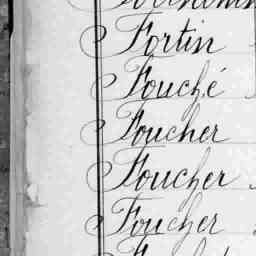 Fortin
Fouché
Foucher
Foucher
Foucher